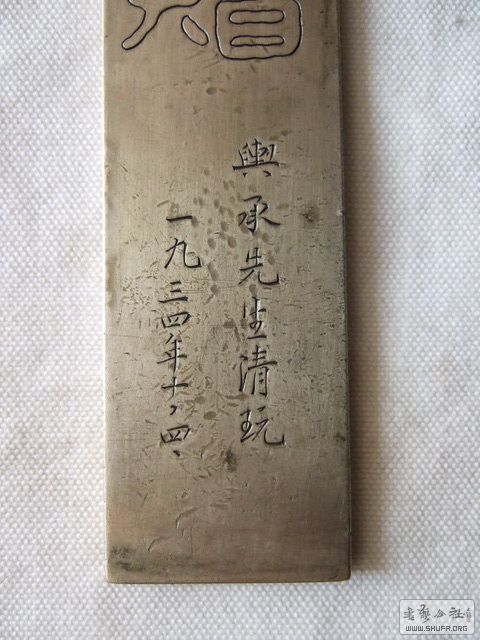 輿承先生清玩
一九三四年十、四、
書藝公社
WWW.SHUFA.ORG